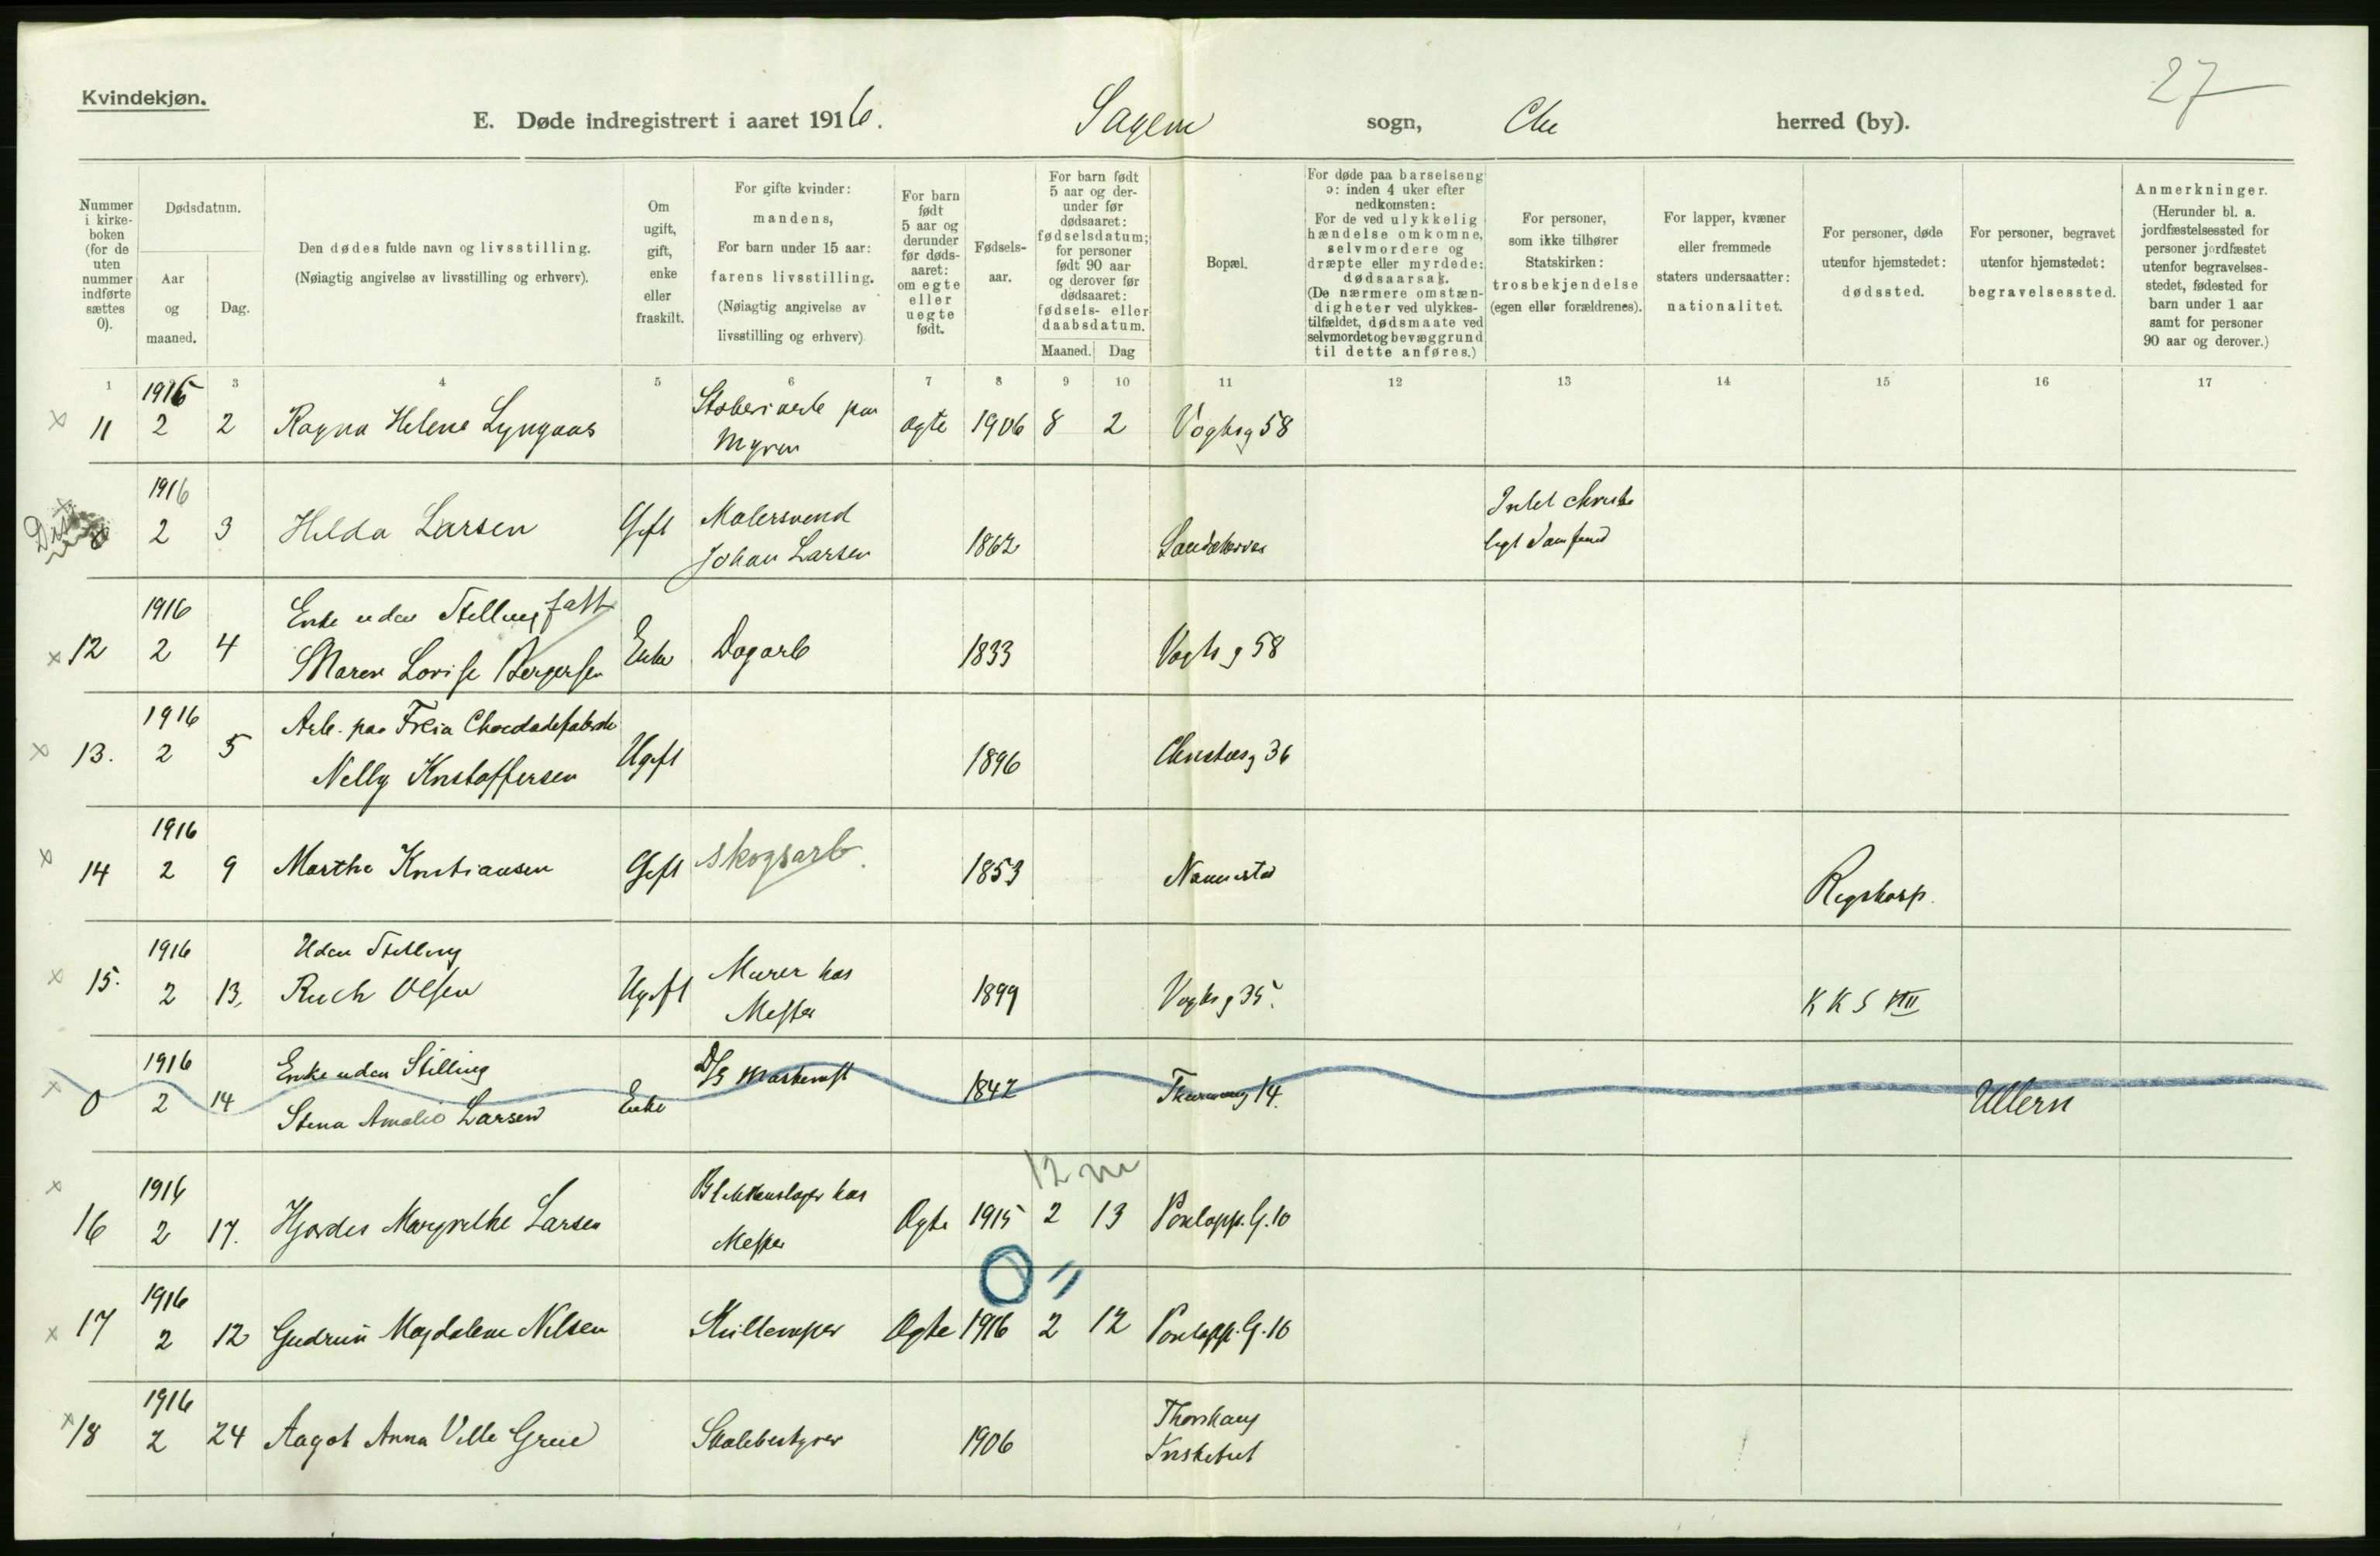 Kvindekjøn.
27
E. Døde indregistrert i aaret 1916. Sagene sogn, Chr herred (by).
Nummer i kirkeboken (for de uten nummer indførte sættes 0).
Dødsdatum.
Aar og maaned.
Dag.
Den dødes fulde navn og livsstilling.
(Nøiagtig angivelse av livsstilling og erhverv).
Om ugift, gift, enke eller fraskilt.
For gifte kvinder: mandens,
For barn under 15 aar: farens livsstilling.
(Nøiagtig angivelse av livsstilling og erhverv)
For barn født 5 aar og derunder før dødsaaret: om egte eller uegte født.
Fødselsaar.
For barn født 5 aar og derunder før dødsaaret: fødselsdatum; for personer født 90 aar og derover før dødsaaret: fødsels- eller daabsdatum.
Maaned. Dag
Bopæl.
For døde paa barselseng ɔ: inden 4 uker efter nedkomsten:
For de ved ulykkelig hændelse omkomne, selvmordere og dræpte eller myrdede: dødsaarsak.
(De nærmere omstændigheter ved ulykkestilfældet, dødsmaate ved selvmordet og bevæggrund til dette anføres.)
For personer, som ikke tilhører Statskirken: trosbekjendelse (egen eller forældrenes).
For lapper, kvæner eller fremmede staters undersaatter: nationalitet.
For personer, døde utenfor hjemstedet: dødssted.
For personer, begravet utenfor hjemstedet: begravelsessted.
Anmerkninger.
(Herunder bl. a. jordfæstelsessted for personer jordfæstet utenfor begravelsesstedet, fødested for barn under 1 aar samt for personer 90 aar og derover.)
1 3 4 5 6 7 8 9 10 11 12 13 14 15 16 17
1916 Støberiarb paa
x 11 2 2 Ragna Helene Lyngaas Myren ægte 1906 8 2 Vogtsg 58
1916 Malersvend Intet christe
2 3 Hilda Larsen Gift Johan Larsen 1862 ligt Samfund
1916 Enke uden Stilling fatt
x 12 2 4 Maren Lovise Bergersen Enke Dagarb 1833 Vogts g 58
1916 Arb. paa Freia Chocoladefabrik
x 13. 2 5 Nelly Kristoffersen Ugift 1896 36
1916 skogsarb.
x 14 2 9 Marthe Kristiansen Gift 1853 Nannestad Rigshosp.
1916 Uden Stilling Murer hos
x 15. 2 13, Ruth Olsen Ugift Mester 1899 Vogts g 35. K K S VIII
1916 Enke uden Stilling D/S Maskinist
x 0 2 14 Stina Amalie Larsen Enke 1842 14. Ullern
12 m
1916 Blikkenslager hos
x 16 2 17. Hjørdis Margrethe Larsen Mester Ægte 1915 2 13 Poulapp. G. 10
0 "
1916
x 17 2 12 Gudrun Magdalene Nilsen Ægte 1916 2 12 Poulapp. G. 10
1916 Thorshaug
x 18 2 24 Aagot Anna Ville Greie Skolebestyrer 1906 Institut